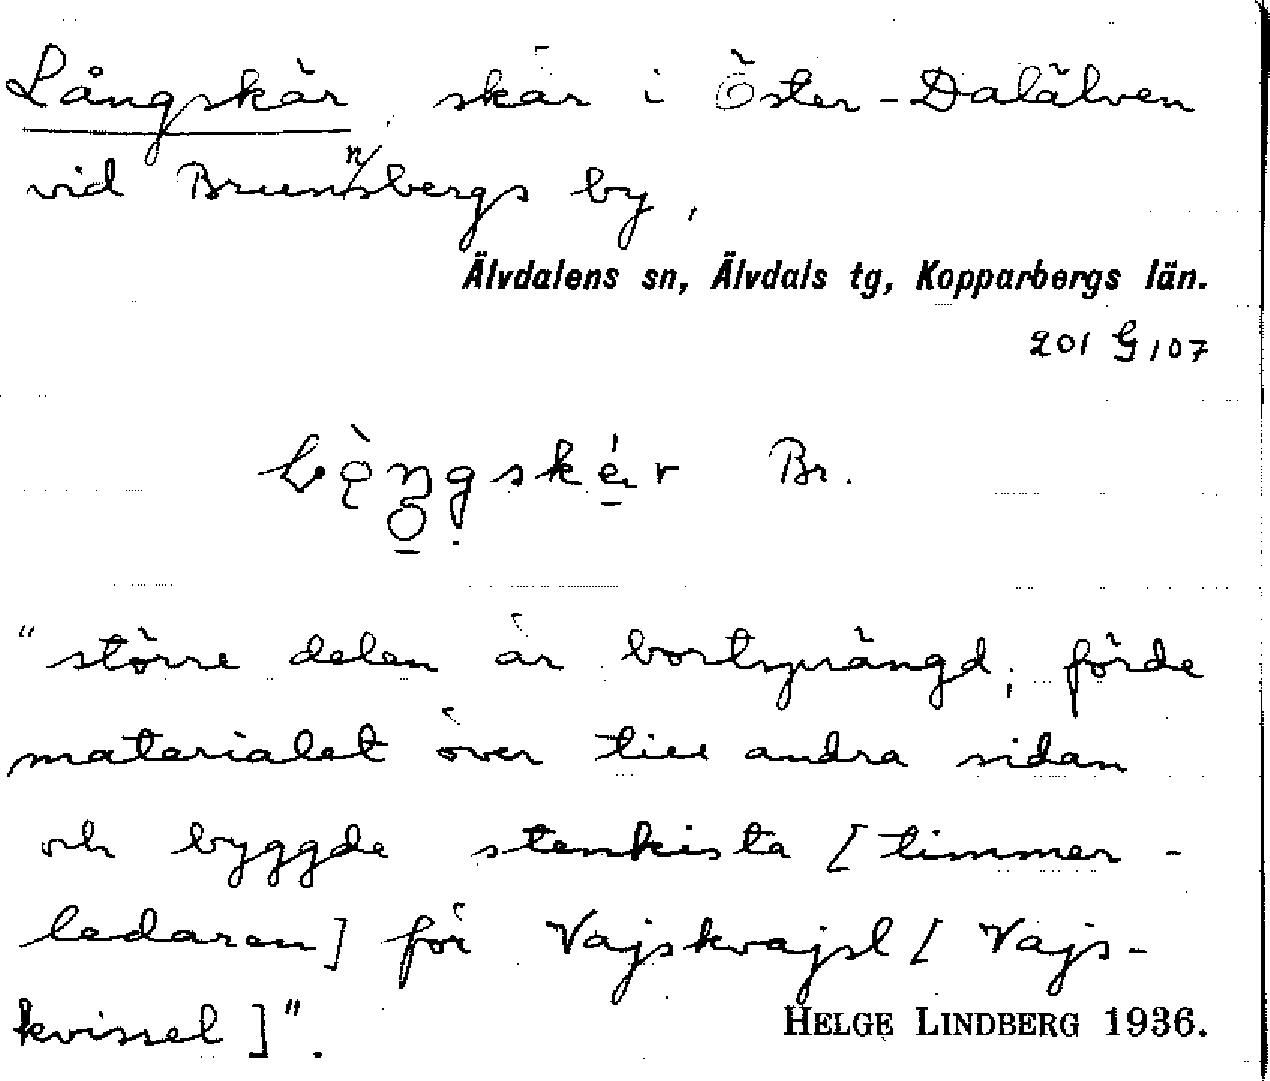 Långskär skär i Öster-Dalälven
vid Brunnsbergs by,
Älvdalens sn, Älvdals tg, Kopparbergs län.
201 G 107
Br.
"större delen är bortsprängd, förde
materialet över till andra sidan
och byggde stenkista [timmer-
ledaren] för Vajskvajsl [Vajs-
kvissel]".
HELGE LINDBERG 1936.